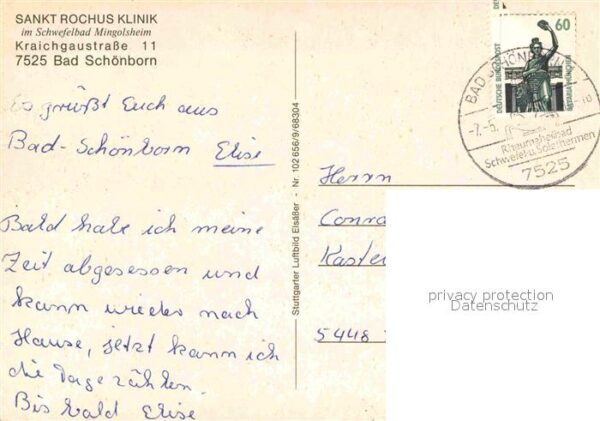 SANKT ROCHUS KLINIK
im Schwefelbad Mingolsheim
Kraichgaustraße 11
7525 Bad Schönborn
Es grüßt Euch aus
Bad-Schönborn Elise
Bald habe ich meine
Zeit abgesessen und
kann wieder nach
Hause, jetzt kann ich
die Tage zählen.
Bis bald Elise
Stuttgarter Luftbild Elsäßer - Nr. 102656/9/88304
60
DEUTSCHE BUNDESPOST
BAVARIA MÜNCHEN
BAD SCHÖNBORN
-7.-5.
Rheumaheilbad
Schwefel u. Solethermen
7525
Herrn
Conra
Kaste
5448
privacy protection
Datenschutz